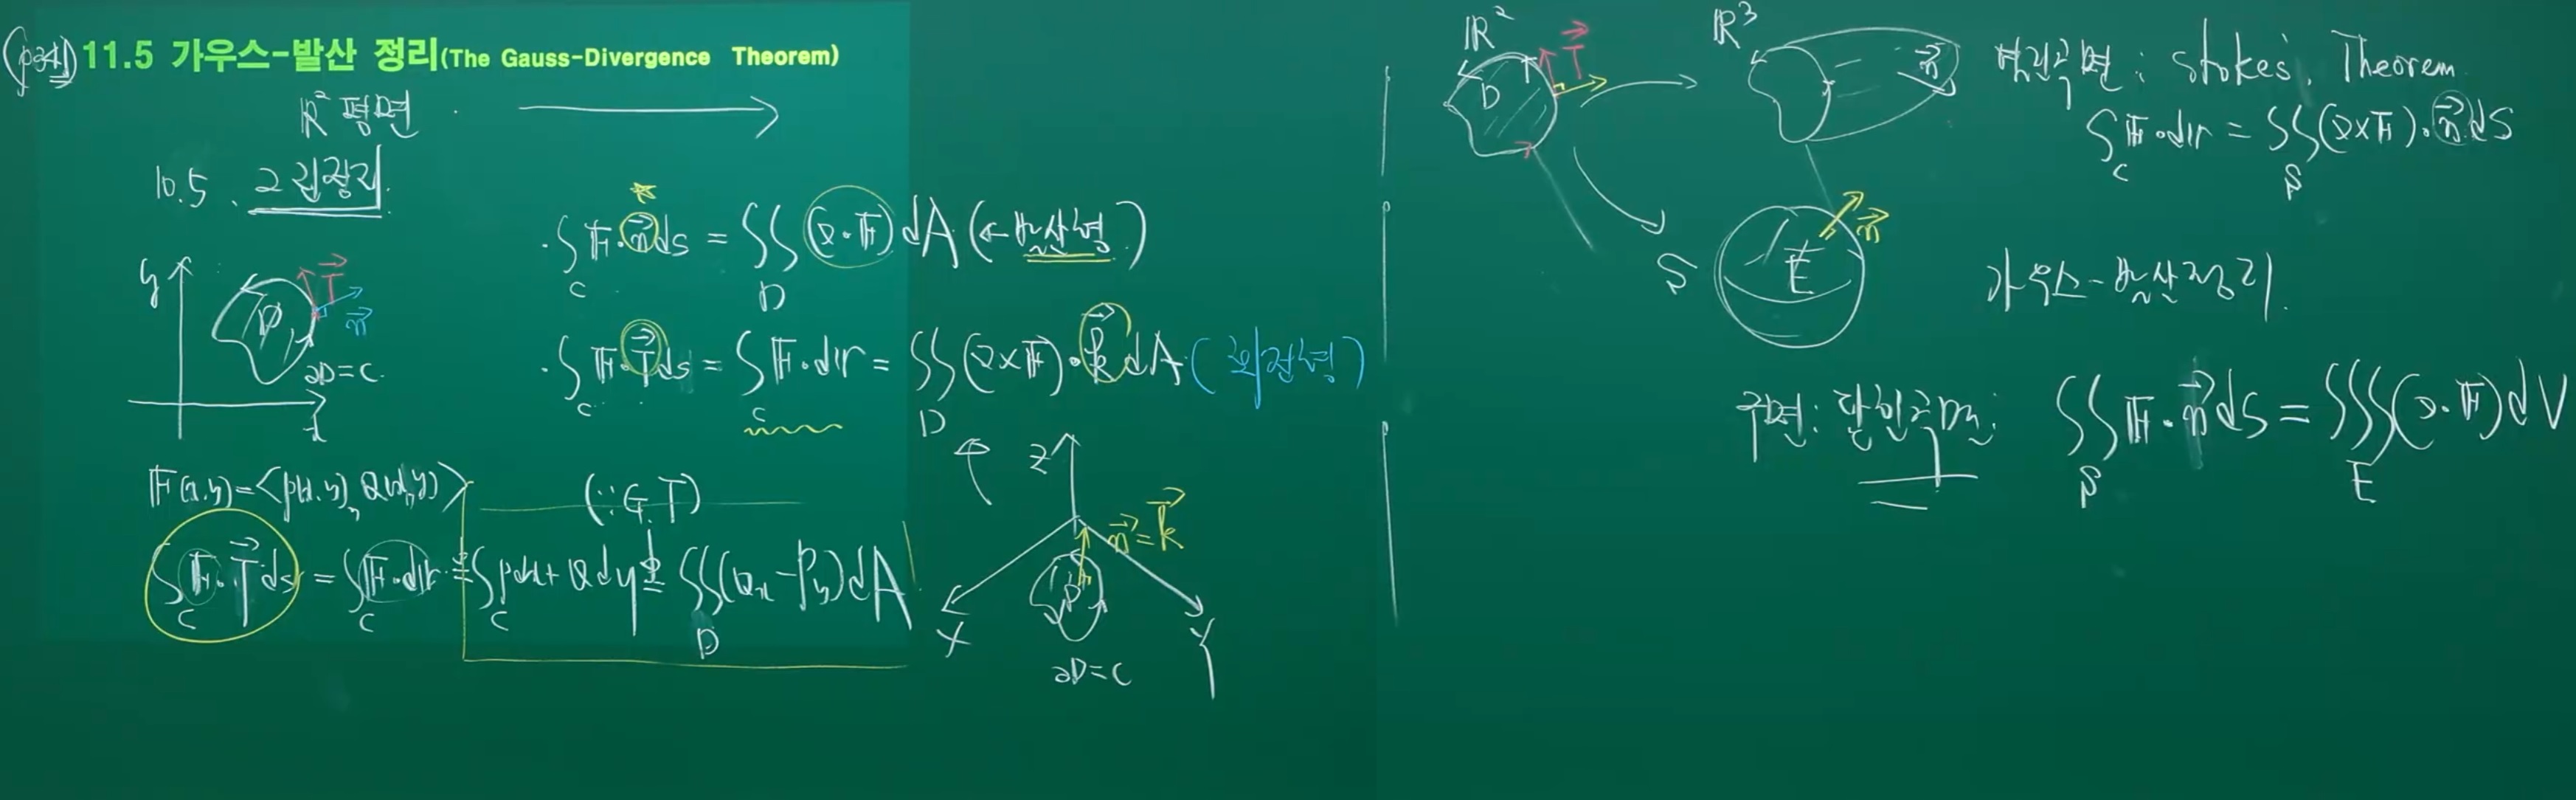 (p941) 11.5 가우스-발산 정리(The Gauss-Divergence Theorem)
ℝ² 평면
10.5. 그린정리.
y
D
T⃗
n⃗
∂D=C.
x
·∫_C 𝔽·n⃗ds = ∬_D (∇·𝔽)dA (←발산형)
·∫_C 𝔽·T⃗ds = ∫_C 𝔽·d𝕣 = ∬_D (∇×𝔽)·k⃗dA (회전형)
𝔽(x,y)=<P(x,y), Q(x,y)>
(∵G.T)
∫_C 𝔽·T⃗ds = ∫_C 𝔽·d𝕣 = ∫_C Pdx+Qdy = ∬_D (Qx-Py)dA
Z
n⃗=k⃗
D
X
Y
∂D=C
ℝ²
T⃗
D
ℝ³
n⃗
열린곡면: Stokes. Theorem
∫_C 𝔽·d𝕣 = ∬_S (∇×𝔽)·n⃗dS
S
E
n⃗
가우스-발산정리.
곡면: 닫힌곡면:
∬_S 𝔽·n⃗dS = ∭_E (∇·𝔽)dV